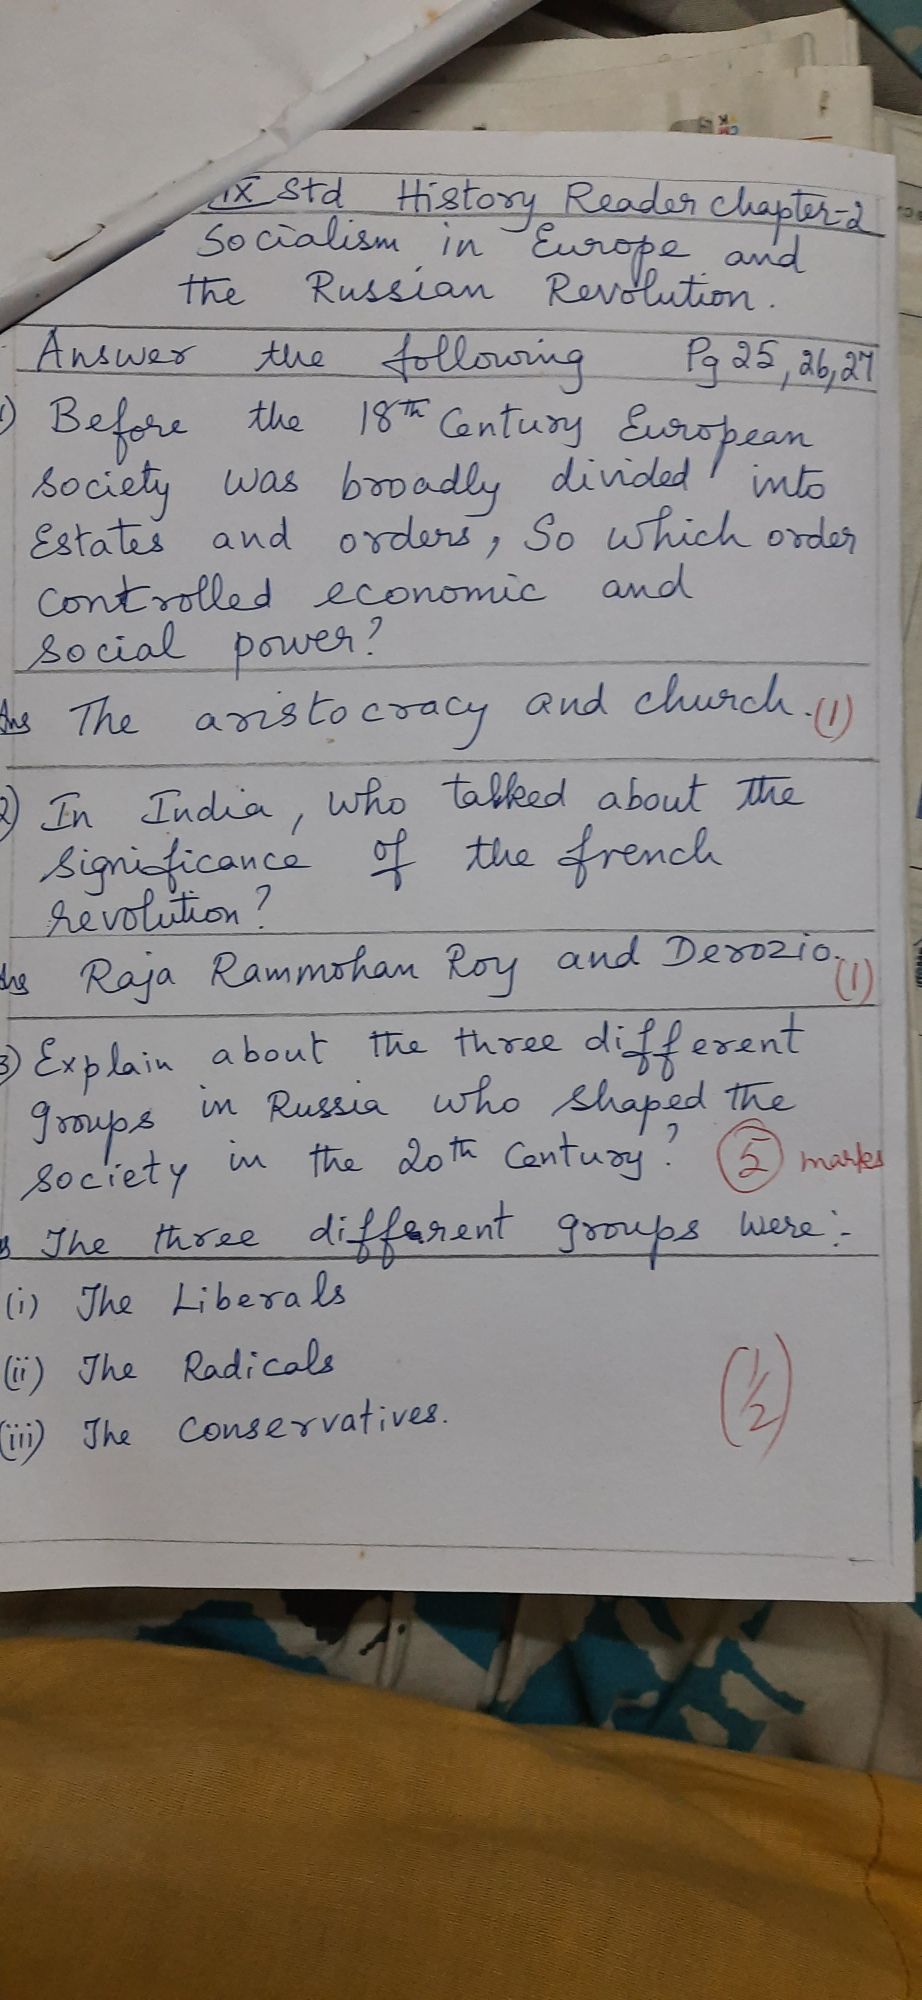 IX Std History Reader chapter-2
Socialism in Europe and
the Russian Revolution.
Answer the following Pg 25, 26, 27
1) Before the 18th Century European
society was broadly divided into
Estates and orders, So which order
controlled economic and
social power?
Ans The aristocracy and church. (1)
2) In India, who talked about the
significance of the french
revolution?
Ans Raja Rammohan Roy and Derozio. (1)
3) Explain about the three different
groups in Russia who shaped the
society in the 20th Century? 5 marks
The three different groups were:-
(i) The Liberals
(ii) The Radicals
(iii) The Conservatives.
(1/2)